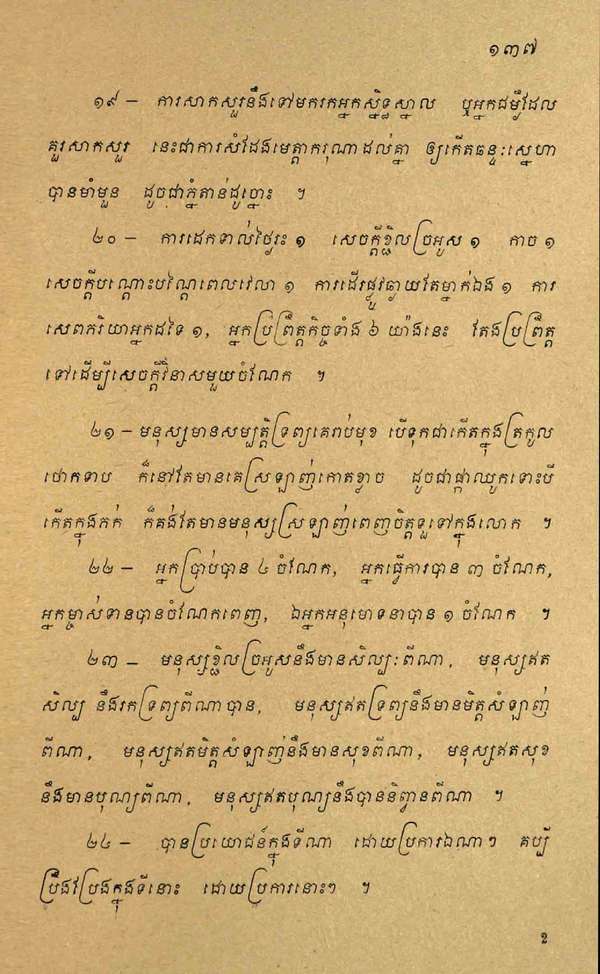 ១៣៧
១៩ – ការសាកសួរនឹងទៅមករកអ្នកស្និទ្ធស្នាល ឬអ្នកជម្ងឺដែល
គួរសាកសួរ នេះជាការសំដែងមេត្តាករុណាដល់គ្នា ឲ្យកើតធនូះស្នេហា
បានមាំមួន ដូចជាភ្នំតាន់ដូច្នោះ ។
២០ – ការដេកទាល់ថ្ងៃរះ ១ សេចក្ដីខ្ជិលច្រអូស ១ កាច ១
សេចក្ដីបណ្ដោះបណ្ដៃពេលវេលា ១ ការដើរផ្លូវឆ្ងាយតែម្នាក់ឯង ១ ការ
សេពភរិយាអ្នកដទៃ ១, អ្នកប្រព្រឹត្តកិច្ចទាំង ៦ យ៉ាងនេះ តែងប្រព្រឹត្ត
ទៅដើម្បីសេចក្ដីវិនាសមួយចំណែក ។
២១ – មនុស្សមានសម្បត្តិទ្រព្យគេរាប់មុខ បើទុកជាកើតក្នុងត្រកូល
ថោកទាប ក៏នៅតែមានគេស្រឡាញ់កោតខ្លាច ដូចជាផ្កាឈូកទោះបី
កើតក្នុងភក់ ក៏គង់តែមានមនុស្សស្រឡាញ់ពេញចិត្តទួទៅក្នុងលោក ។
២២ – អ្នកប្រាប់បាន ៤ ចំណែក, អ្នកធ្វើការបាន ៣ ចំណែក,
អ្នកម្ចាស់ទានបានចំណែកពេញ, ឯអ្នកអនុមោទនាបាន ១ ចំណែក ។
២៣ – មនុស្សខ្ជិលច្រអូសនឹងមានសិល្បៈពីណា, មនុស្សឥត
សិល្ប នឹងរកទ្រព្យពីណាបាន, មនុស្សឥតទ្រព្យនឹងមានមិត្តសំឡាញ់
ពីណា, មនុស្សឥតមិត្តសំឡាញ់នឹងមានសុខពីណា, មនុស្សឥតសុខ
នឹងមានបុណ្យពីណា, មនុស្សឥតបុណ្យនឹងបាននិព្វានពីណា ។
២៤ – បានប្រយោជន៍ក្នុងទីណា ដោយប្រការឯណាៗ គប្បី
ប្រឹងប្រែងក្នុងទីនោះ ដោយប្រការនោះៗ ។
2